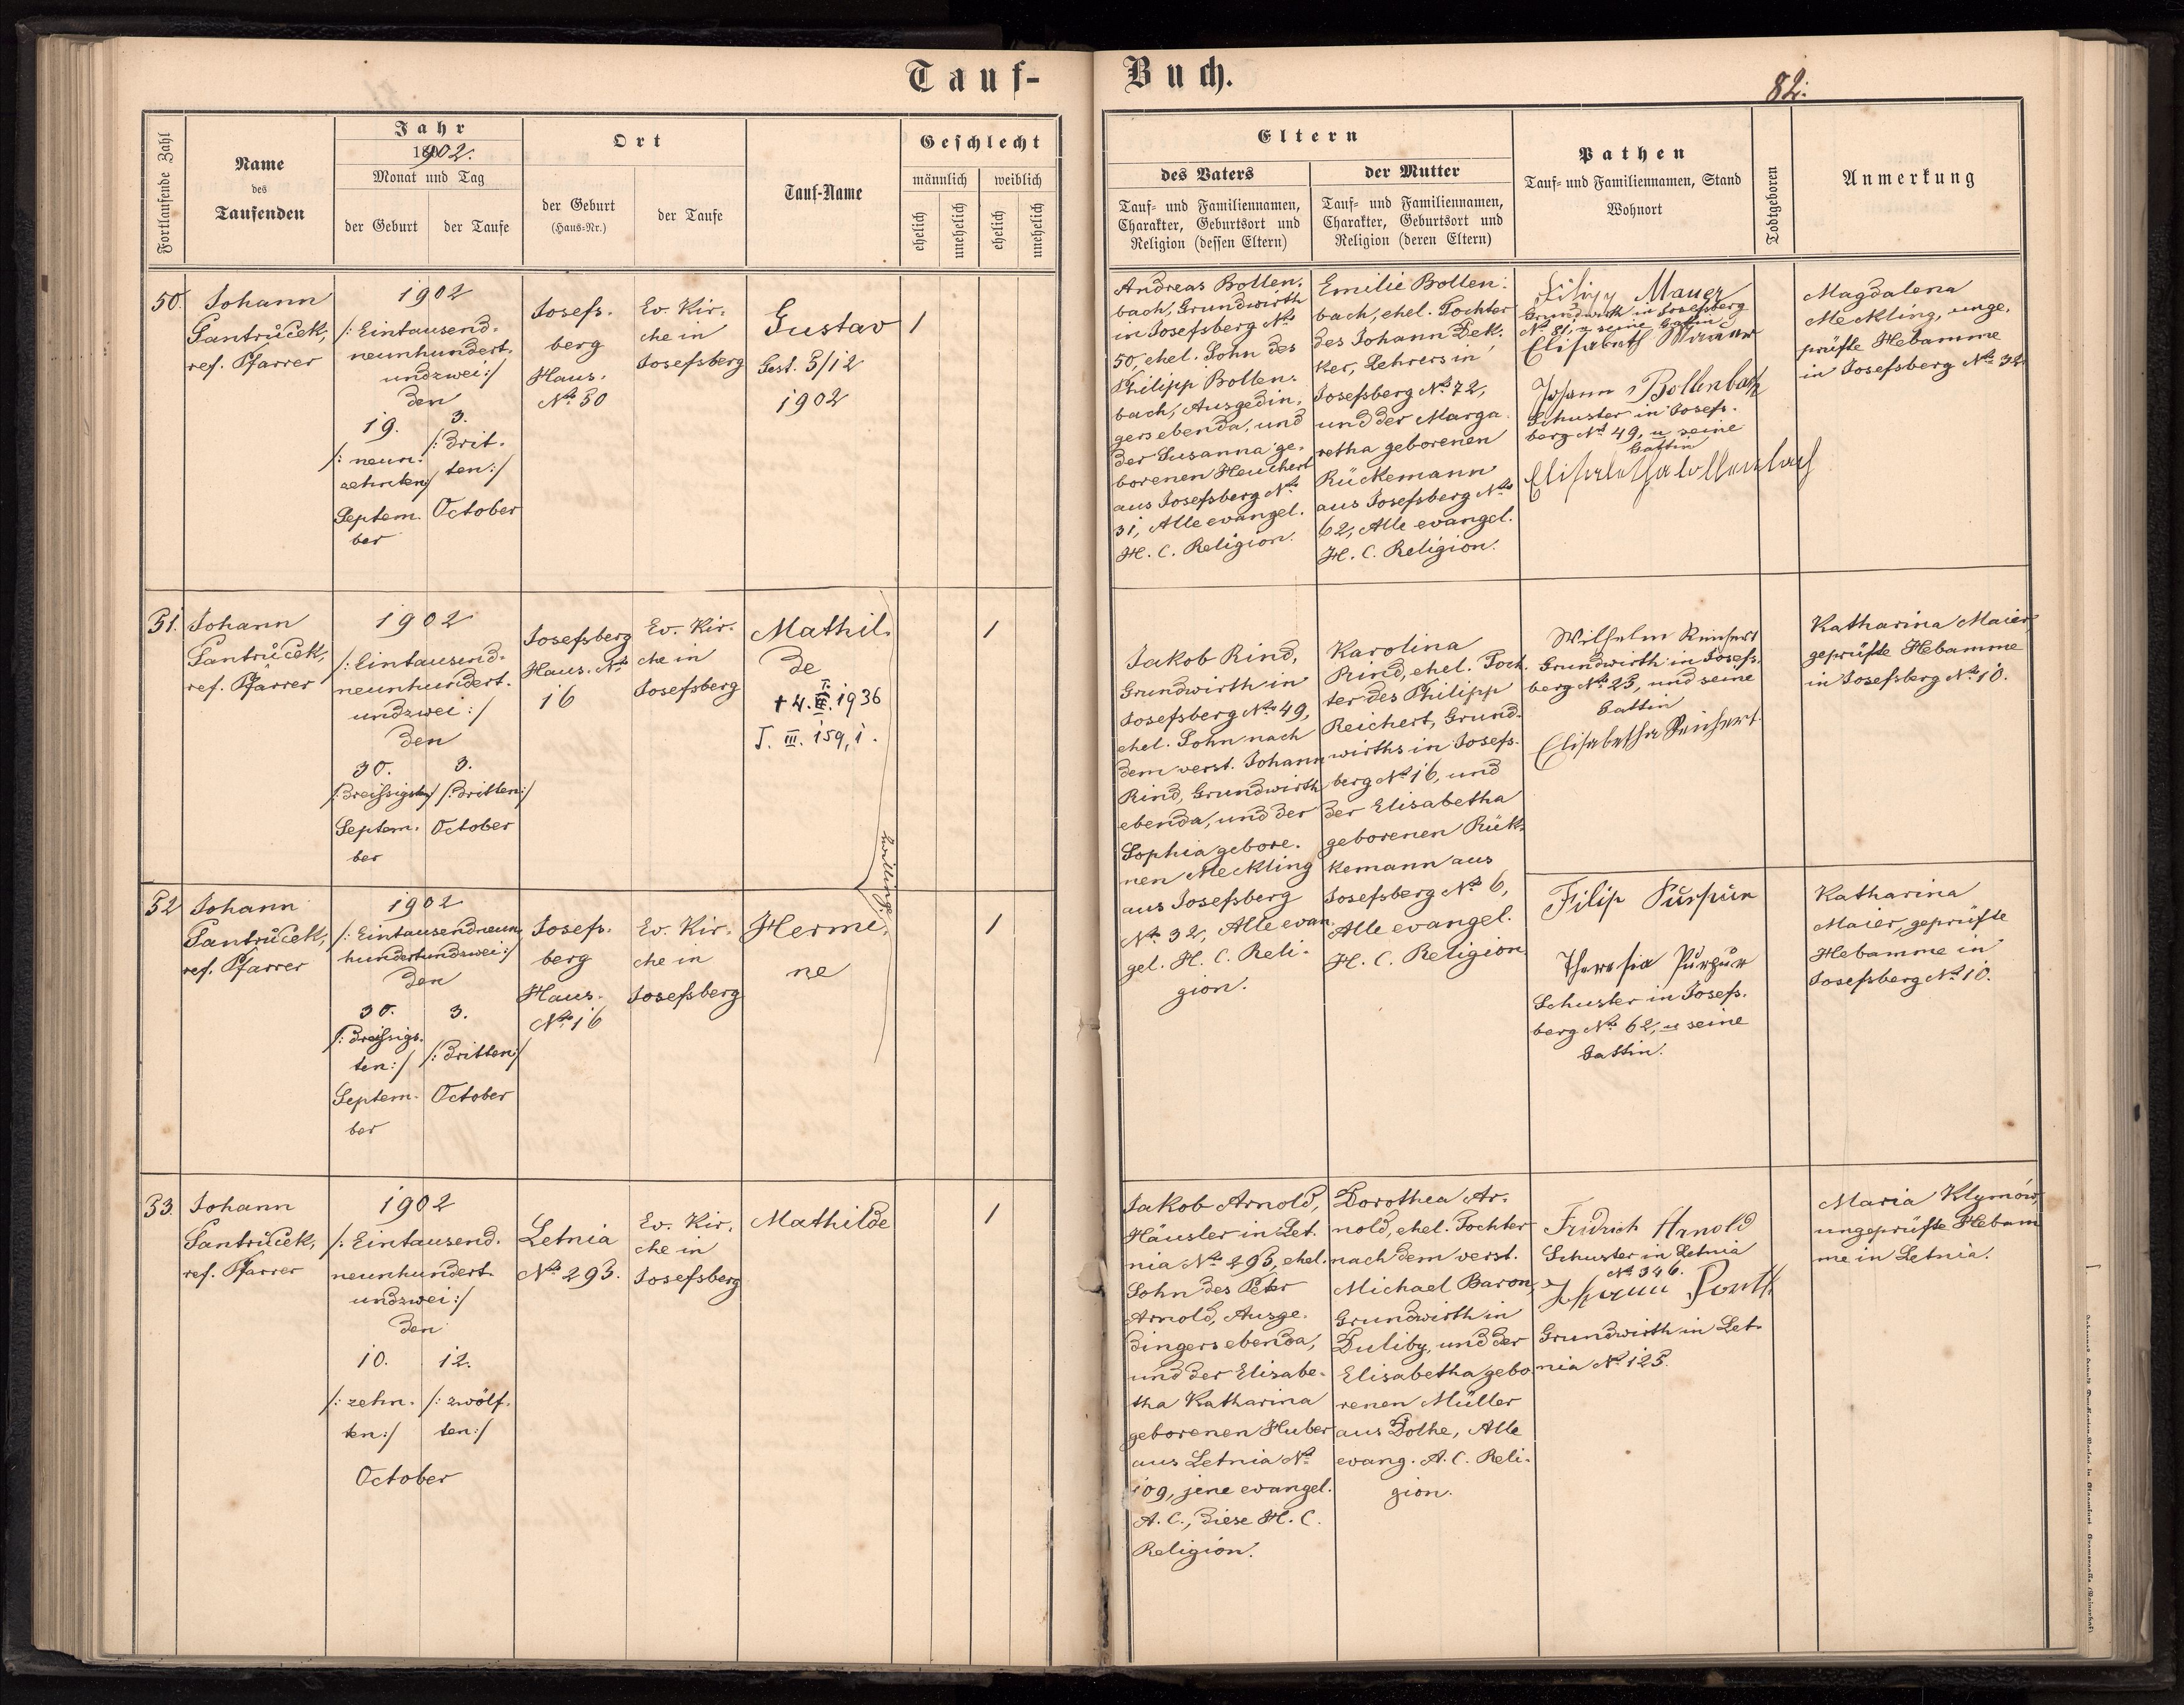 Tauf-
Buch.
82.
Fortlaufende Zahl
Name
des
Taufenden
Jahr
1902.
Monat und Tag
der Geburt
der Taufe
Ort
der Geburt
(Haus-Nr.)
der Taufe
Tauf-Name
Geschlecht
männlich
weiblich
ehelich
unehelich
ehelich
unehelich
Eltern
des Vaters
Tauf- und Familiennamen,
Charakter, Geburtsort und
Religion (dessen Eltern)
der Mutter
Tauf- und Familiennamen,
Charakter, Geburtsort und
Religion (deren Eltern)
Pathen
Tauf- und Familiennamen, Stand
Wohnort
Todtgeboren
Anmerkung
50.
Johann
Santrůček,
ref. Pfarrer
1902
/: Eintausend-
neunhundert-
undzwei :/
den
19.
/: neun-
zehnten :/
Septem-
ber
3.
/: drit-
ten :/
October
Josefs-
berg
Haus-
No 50
Ev. Kir-
che in
Josefsberg
Gustav
Gest. 5/12
1902
1
Andreas Bollen-
bach, Grundwirth
in Josefsberg No
50, ehel. Sohn des
Philipp Bollen-
bach, Ausgedin-
gers ebenda, und
der Susanna ge-
borenen Heuchert
aus Josefsberg No
31, Alle evangel.
H. C. Religion.
Emilie Bollen-
bach, ehel. Tochter
des Johann Dek-
ker, Lehrers in
Josefsberg No 72,
und der Marga-
retha geborenen
Rückemann
aus Josefsberg No
62, Alle evangel.
H. C. Religion.
Filipp Mauer
Grundwirth in Josefsberg
No 81, u seine Gattin
Elisabeth Mauer
Johann Bollenbach
Schuster in Josefs-
berg No 49, u seine
Gattin
Magdalena
Meckling, unge-
prüfte Hebamme
in Josefsberg No 32
51.
Johann
Santrůček,
ref. Pfarrer
1902
/: Eintausend-
neunhundert-
undzwei :/
den
30.
/: dreißigsten :/
Septem-
ber
3.
/: dritten :/
October
Josefsberg
Haus-No
16
Ev. Kir-
che in
Josefsberg
Mathil-
de
+ 4. I. 1936
T. III. 159, 1.
1
Zwillinge
Jakob Rind,
Grundwirth in
Josefsberg No 49,
ehel. Sohn nach
dem verst. Johann
Rind, Grundwirth
ebenda, und der
Sophia gebore-
nen Meckling
aus Josefsberg
No 32, Alle evan-
gel. H. C. Reli-
gion.
Karolina
Rind, ehel. Toch-
ter des Philipp
Reichert, Grund-
wirths in Josefs-
berg No 16, und
der Elisabetha
geborenen Rük-
kemann aus
Josefsberg No 6,
Alle evangel.
H. C. Religion
Wilhelm Reichert
Grundwirth in Josefs-
berg No 25, und seine
Gattin
Elisabetha Reichert
Katharina Maier,
geprüfte Hebamme
in Josefsberg No 10.
52
Johann
Santrůček,
ref. Pfarrer
1902
/: Eintausendneun-
hundertundzwei :/
den
30.
/: dreißigs-
ten :/
Septem-
ber
3.
/: dritten :/
October
Josefs-
berg
Haus-
No 16
Ev. Kir-
che in
Josefsberg
Hermi-
ne
1
Filip Purpur
Theresia Purpur
Schuster in Josefs-
berg No 62, u seine
Gattin.
Katharina
Maier, geprüfte
Hebamme in
Josefsberg No 10.
53.
Johann
Santrůček,
ref. Pfarrer
1902
/: Eintausend-
neunhundert-
undzwei :/
den
10.
/: zehn-
ten :/
12.
/: zwölf-
ten :/
October
Letnia
No 293.
Ev. Kir-
che in
Josefsberg
Mathilde
1
Jakob Arnold,
Häusler in Let-
nia No 293, ehel.
Sohn des Peter
Arnold, Ausge-
dingers ebenda,
und der Elisabe-
tha Katharina
geborenen Huber
aus Letnia No
109, jene evangel.
A. C., diese H. C.
Religion.
Dorothea Ar-
nold, ehel. Tochter
nach dem verst.
Michael Baron,
Grundwirth in
Duliby, und der
Elisabetha gebo-
renen Müller
aus Dolhe, Alle
evang. A. C. Reli-
gion.
Fridrich Arnold
Schuster in Letnia
No 346.
Johann
Grundwirth in Let-
nia No 125.
Maria Klymów,
ungeprüfte Hebam-
me in Letnia.